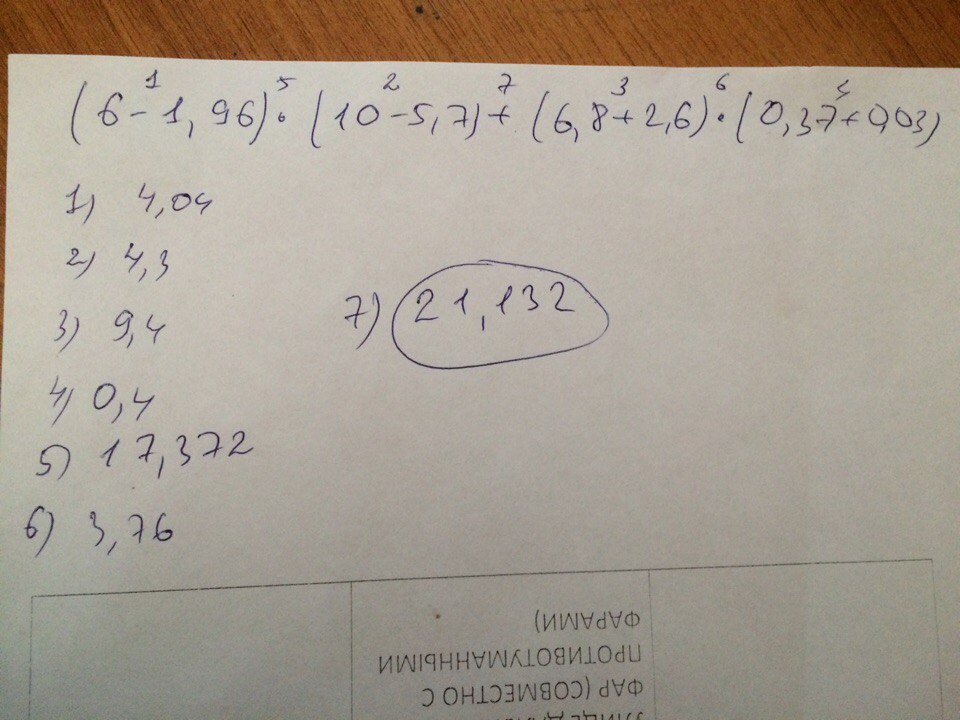 1 5 2 7 3 6 4
(6-1,96)·(10-5,7)+(6,8+2,6)·(0,37+0,03)
1) 4,04
2) 4,3
3) 9,4
4) 0,4
5) 17,372
6) 3,76
7) 21,132
ФАР (СОВМЕСТНО С
ПРОТИВОТУМАННЫМИ
ФАРАМИ)